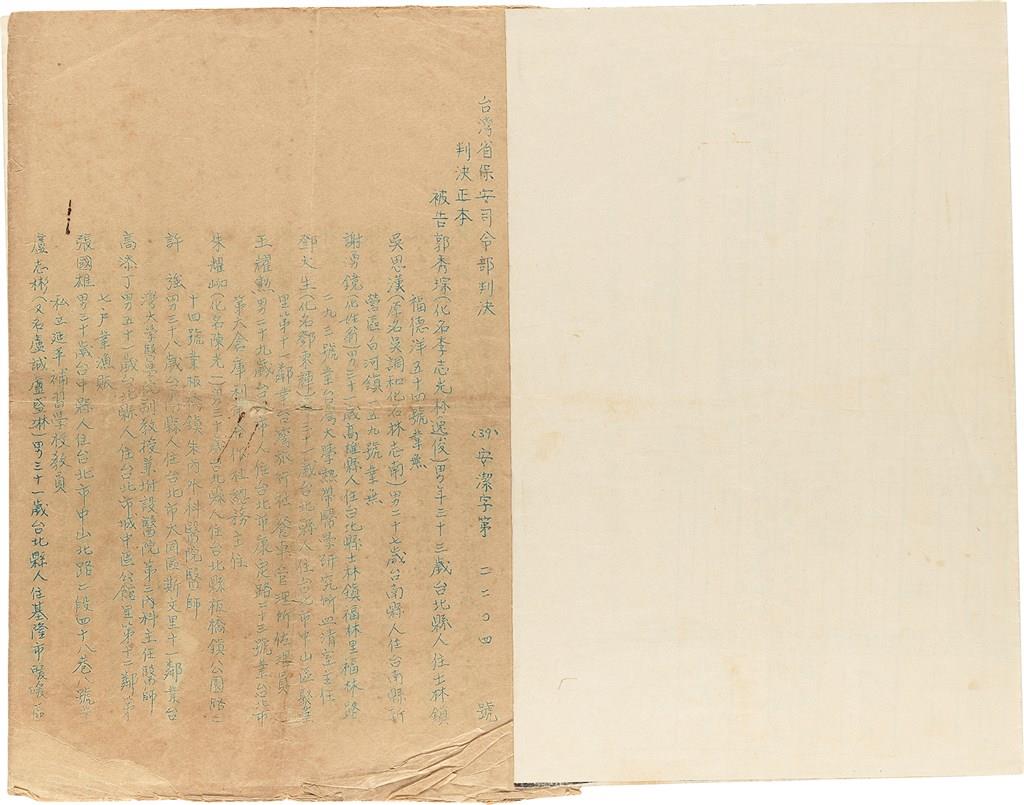 台灣省保安司令部判決
(39)安潔字第二二〇四號
判決正本
被告郭秀琮(化名李志光林逸俊)男年三十三歲台北縣人住士林鎮
福德洋五十四號業無
吳思漢(原名吳調和化名林志南)男二十七歲台南縣人住台南縣新
營區白河鎮一五九號業無
謝湧鏡(化姓翁)男三十一歲高雄縣人住台北縣士林鎮福林里福林路
一九三號業台灣大學熱帶醫學研究所血清室主任
鄧火生(化名鄧東輝)男三十一歲台北縣人住台北市中山區聚葉
里第十一鄰業台灣旅行社 管理所佐理員
王耀勲男二十九歲台北市人住台北市康定路二十三號業台北市
第六倉庫利 社總務主任
朱耀岬(化名陳光一)男三十歲台北縣人住台北縣板橋鎮公園路二
十四號業板橋鎮朱內外科醫院醫師
許 強男三十八歲台南縣人住台北市大同區斯文里十一鄰業台
灣大學醫學院副教授兼附設醫院第三內科主任醫師
高添丁男五十一歲台北縣人住台北市城中區公館里第十二鄰第
七戶業漁販
張國雄男三十歲台中縣人住台北市中山北路二段四十八巷八號業
私立延平補習學校教員
盧志彬(又名盧誠盧盛琳)男三十一歲台北縣人住基隆市暖暖區